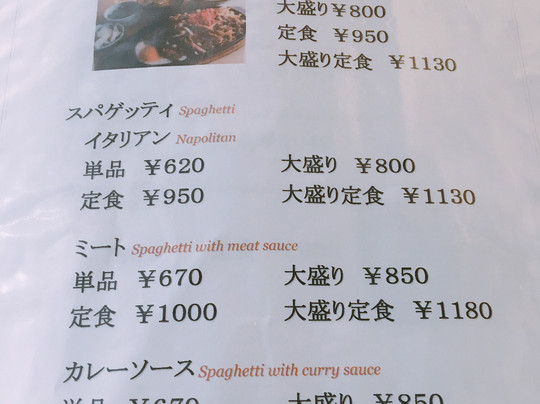 大盛り ¥800
定食 ¥950
大盛り定食 ¥1130
スパゲッティ Spaghetti
イタリアン Napolitan
単品 ¥620 大盛り ¥800
定食 ¥950 大盛り定食 ¥1130
ミート Spaghetti with meat sauce
単品 ¥670 大盛り ¥850
定食 ¥1000 大盛り定食 ¥1180
カレーソース Spaghetti with curry sauce
単品 ¥670 大盛り ¥850